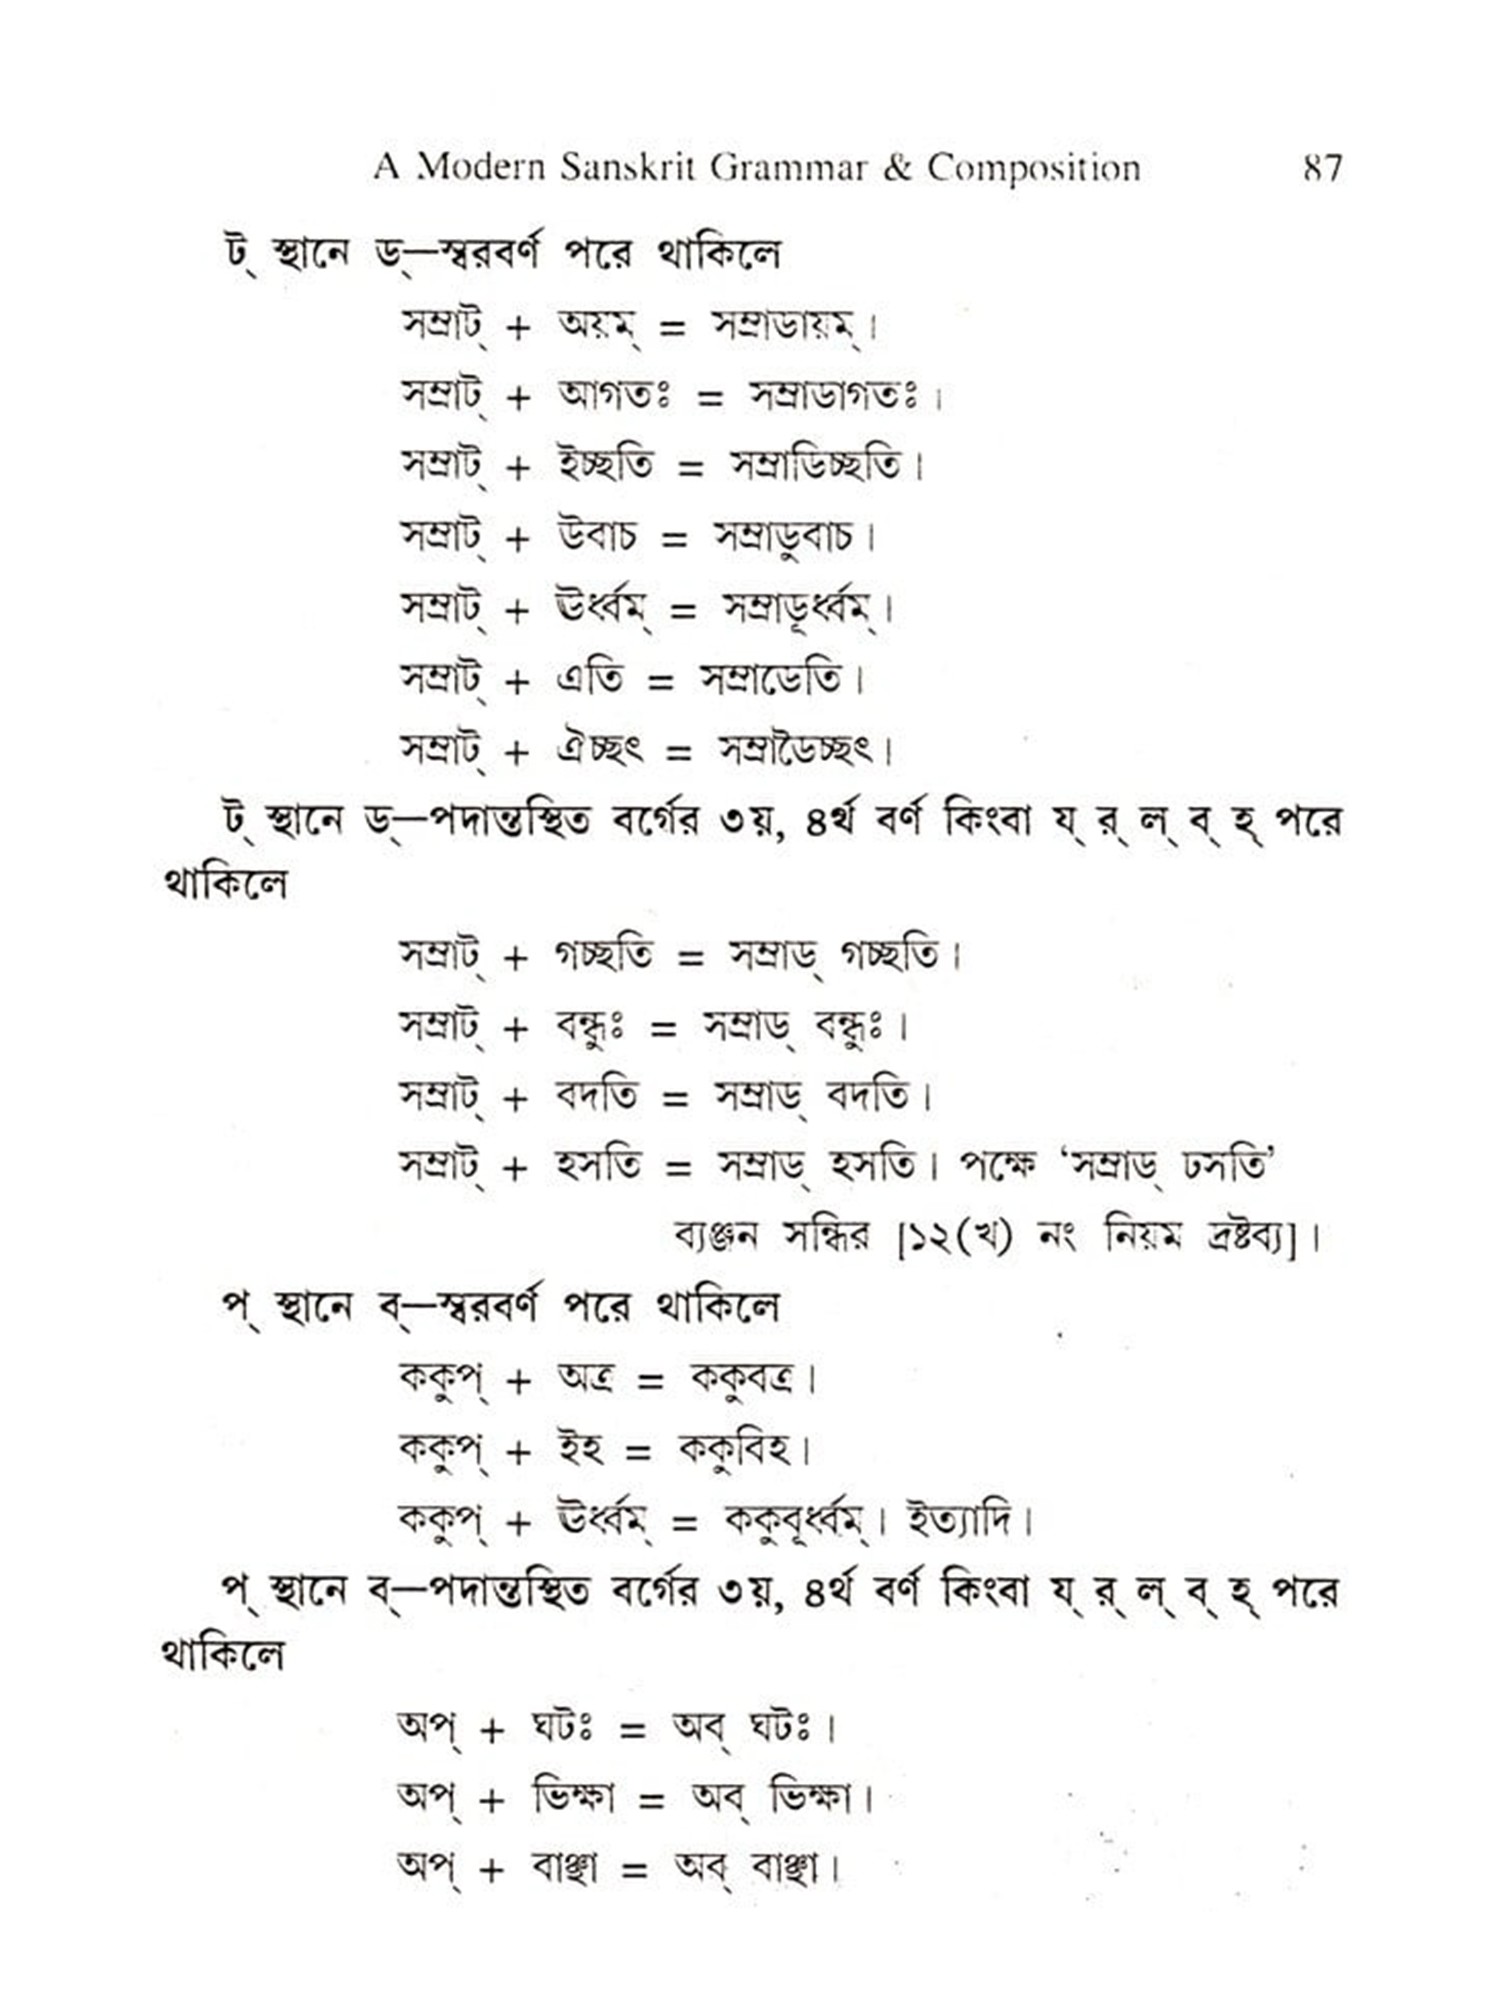 A Modern Sanskrit Grammar & Composition 87
ট্ স্থানে ড্—স্বরবর্ণ পরে থাকিলে
সম্রাট্ + অয়ম্ = সম্রাডায়ম্।
সম্রাট্ + আগতঃ = সম্রাডাগতঃ।
সম্রাট্ + ইচ্ছতি = সম্রাডিচ্ছতি।
সম্রাট্ + উবাচ = সম্রাডুবাচ।
সম্রাট্ + ঊর্ধ্বম্ = সম্রাডূর্ধ্বম্।
সম্রাট্ + এতি = সম্রাডেতি।
সম্রাট্ + ঐচ্ছৎ = সম্রাডৈচ্ছৎ।
ট্ স্থানে ড্—পদান্তস্থিত বর্গের ৩য়, ৪র্থ বর্ণ কিংবা য্ র্ ল্ ব্ হ্ পরে
থাকিলে
সম্রাট্ + গচ্ছতি = সম্রাড্ গচ্ছতি।
সম্রাট্ + বন্ধুঃ = সম্রাড্ বন্ধুঃ।
সম্রাট্ + বদতি = সম্রাড্ বদতি।
সম্রাট্ + হসতি = সম্রাড্ হসতি। পক্ষে ‘সম্রাড্ ঢসতি’
ব্যঞ্জন সন্ধির [১২(খ) নং নিয়ম দ্রষ্টব্য]।
প্ স্থানে ব্—স্বরবর্ণ পরে থাকিলে
ককুপ্ + অত্র = ককুবত্র।
ককুপ্ + ইহ = ককুবিহ।
ককুপ্ + ঊর্ধ্বম্ = ককুবূর্ধ্বম্। ইত্যাদি।
প্ স্থানে ব্—পদান্তস্থিত বর্গের ৩য়, ৪র্থ বর্ণ কিংবা য্ র্ ল্ ব্ হ্ পরে
থাকিলে
অপ্ + ঘটঃ = অব্ ঘটঃ।
অপ্ + ভিক্ষা = অব্ ভিক্ষা।
অপ্ + বাঞ্ছা = অব্ বাঞ্ছা।